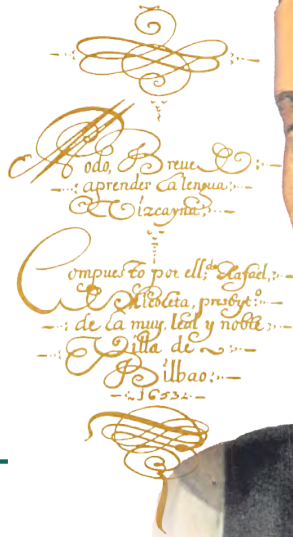 Modo, Breve de
aprender la lengua
Vizcayna:
Compuesto por el Ldo Rafael,
Micoleta, presbyto
de la muy, leal y noble
Villa de
Bilbao:
1653